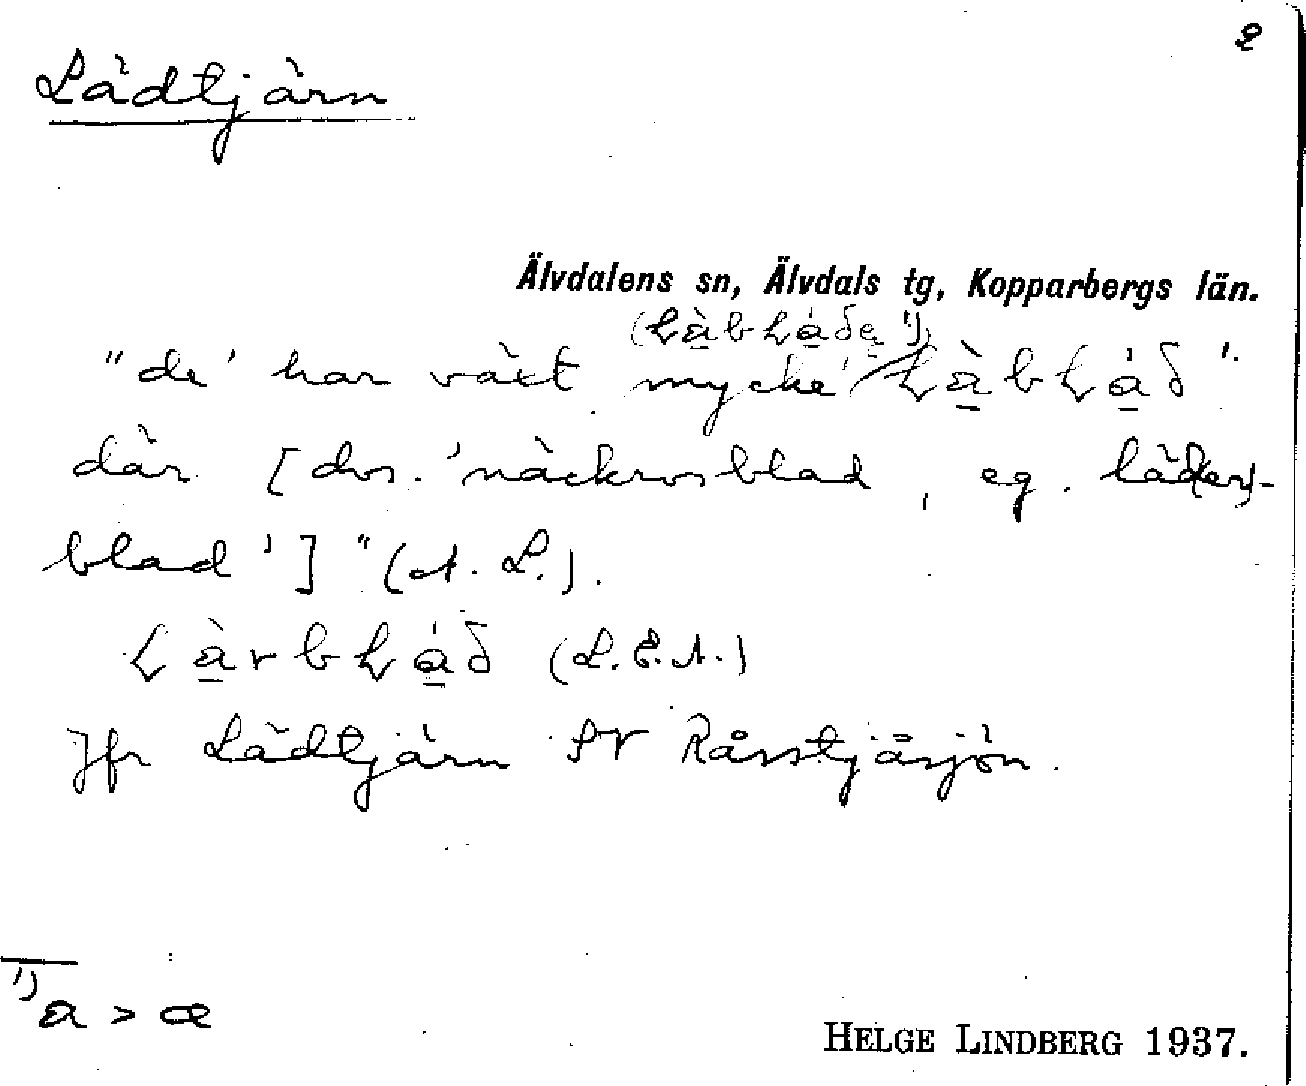 2
Lädtjärn
Älvdalens sn, Älvdals tg, Kopparbergs län.
"de' har växt mycke'
där [dvs. 'näckrosblad, eg. läd(er)-
blad']" (A. L.).
(L. E. A.)
Jfr Lädtjärn SV Råsstjäsjön.
1) a > æ
HELGE LINDBERG 1937.